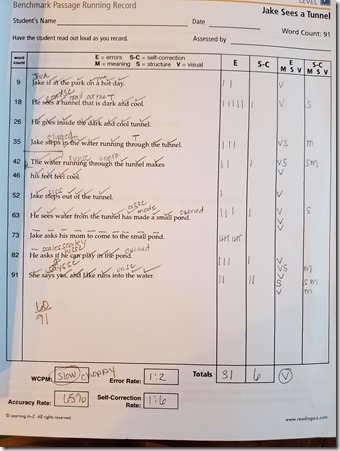 LEVEL
Benchmark Passage Running Record
Jake Sees a Tunnel
Student's Name
Date
Word Count: 91
Have the student read out loud as you record.
Assessed by
word count
E = errors S-C = self-correction
M = meaning S = structure V = visual
E
S-C
E
M S V
S-C
M S V
9 Jake is at the park on a hot day. || V
18 He sees a tunnel that is dark and cool. V S
T
26 He goes inside the dark and cool tunnel.
T
35 Jake steps in the water running through the tunnel. ||| | VS m
there
42 The water running through the tunnel makes || | VS sm
46 his feet feel cool. V
52 Jake steps out of the tunnel. | V
made opened
63 He sees water from the tunnel has made a small pond. ||| | V S
V
V
73 Jake asks his mom to come to the small pond.
82 He asks if he can play in the pond. ||| | V
VS m
91 She says yes, and Jake runs into the water. || || V S sm
V m
60
91
WCPM: slow choppy
Error Rate: 1:2
Totals 31 6 V
Accuracy Rate: 65%
Self-Correction Rate: 1:6
© Learning A–Z All rights reserved.
www.readinga-z.com